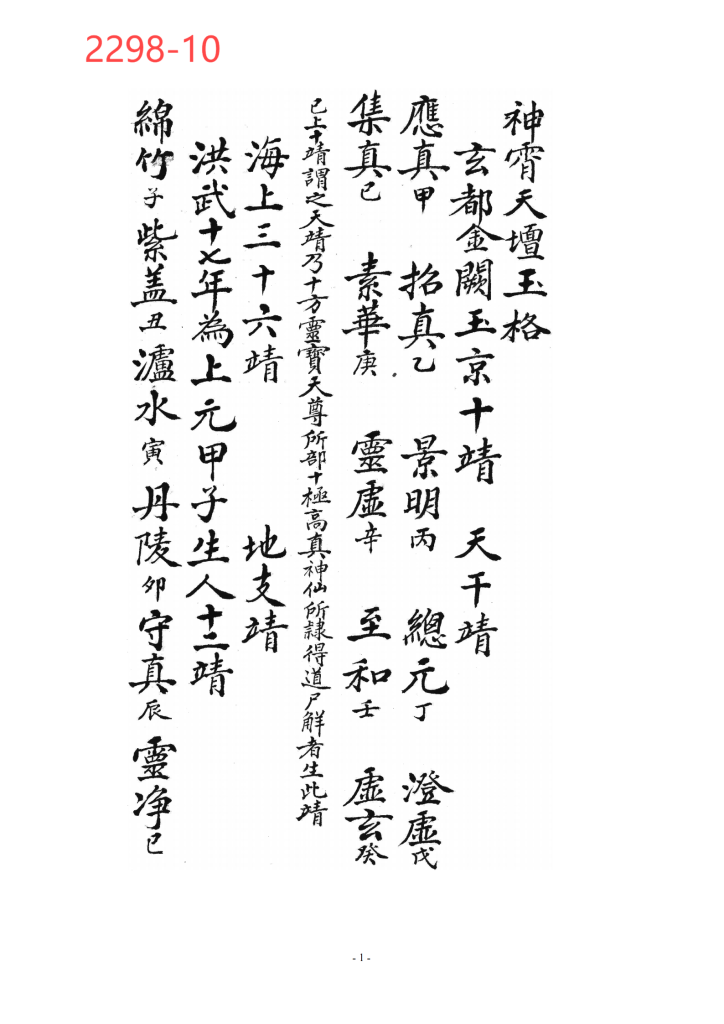 2298-10
神霄天壇玉格
玄都金闕玉京十靖 天干靖
應真甲 招真乙 景明丙 總元丁 澄虛戊
集真已 素華庚 靈虛辛 至和壬 虛玄癸
已上十靖謂之天靖乃十方靈寶天尊所部十極高真神仙所隷得道尸解者生此靖
海上三十六靖 地支靖
洪武十七年為上元甲子生人十二靖
綿竹子 紫盖丑 瀘水寅 丹陵卯 守真辰 靈净巳
- 1 -